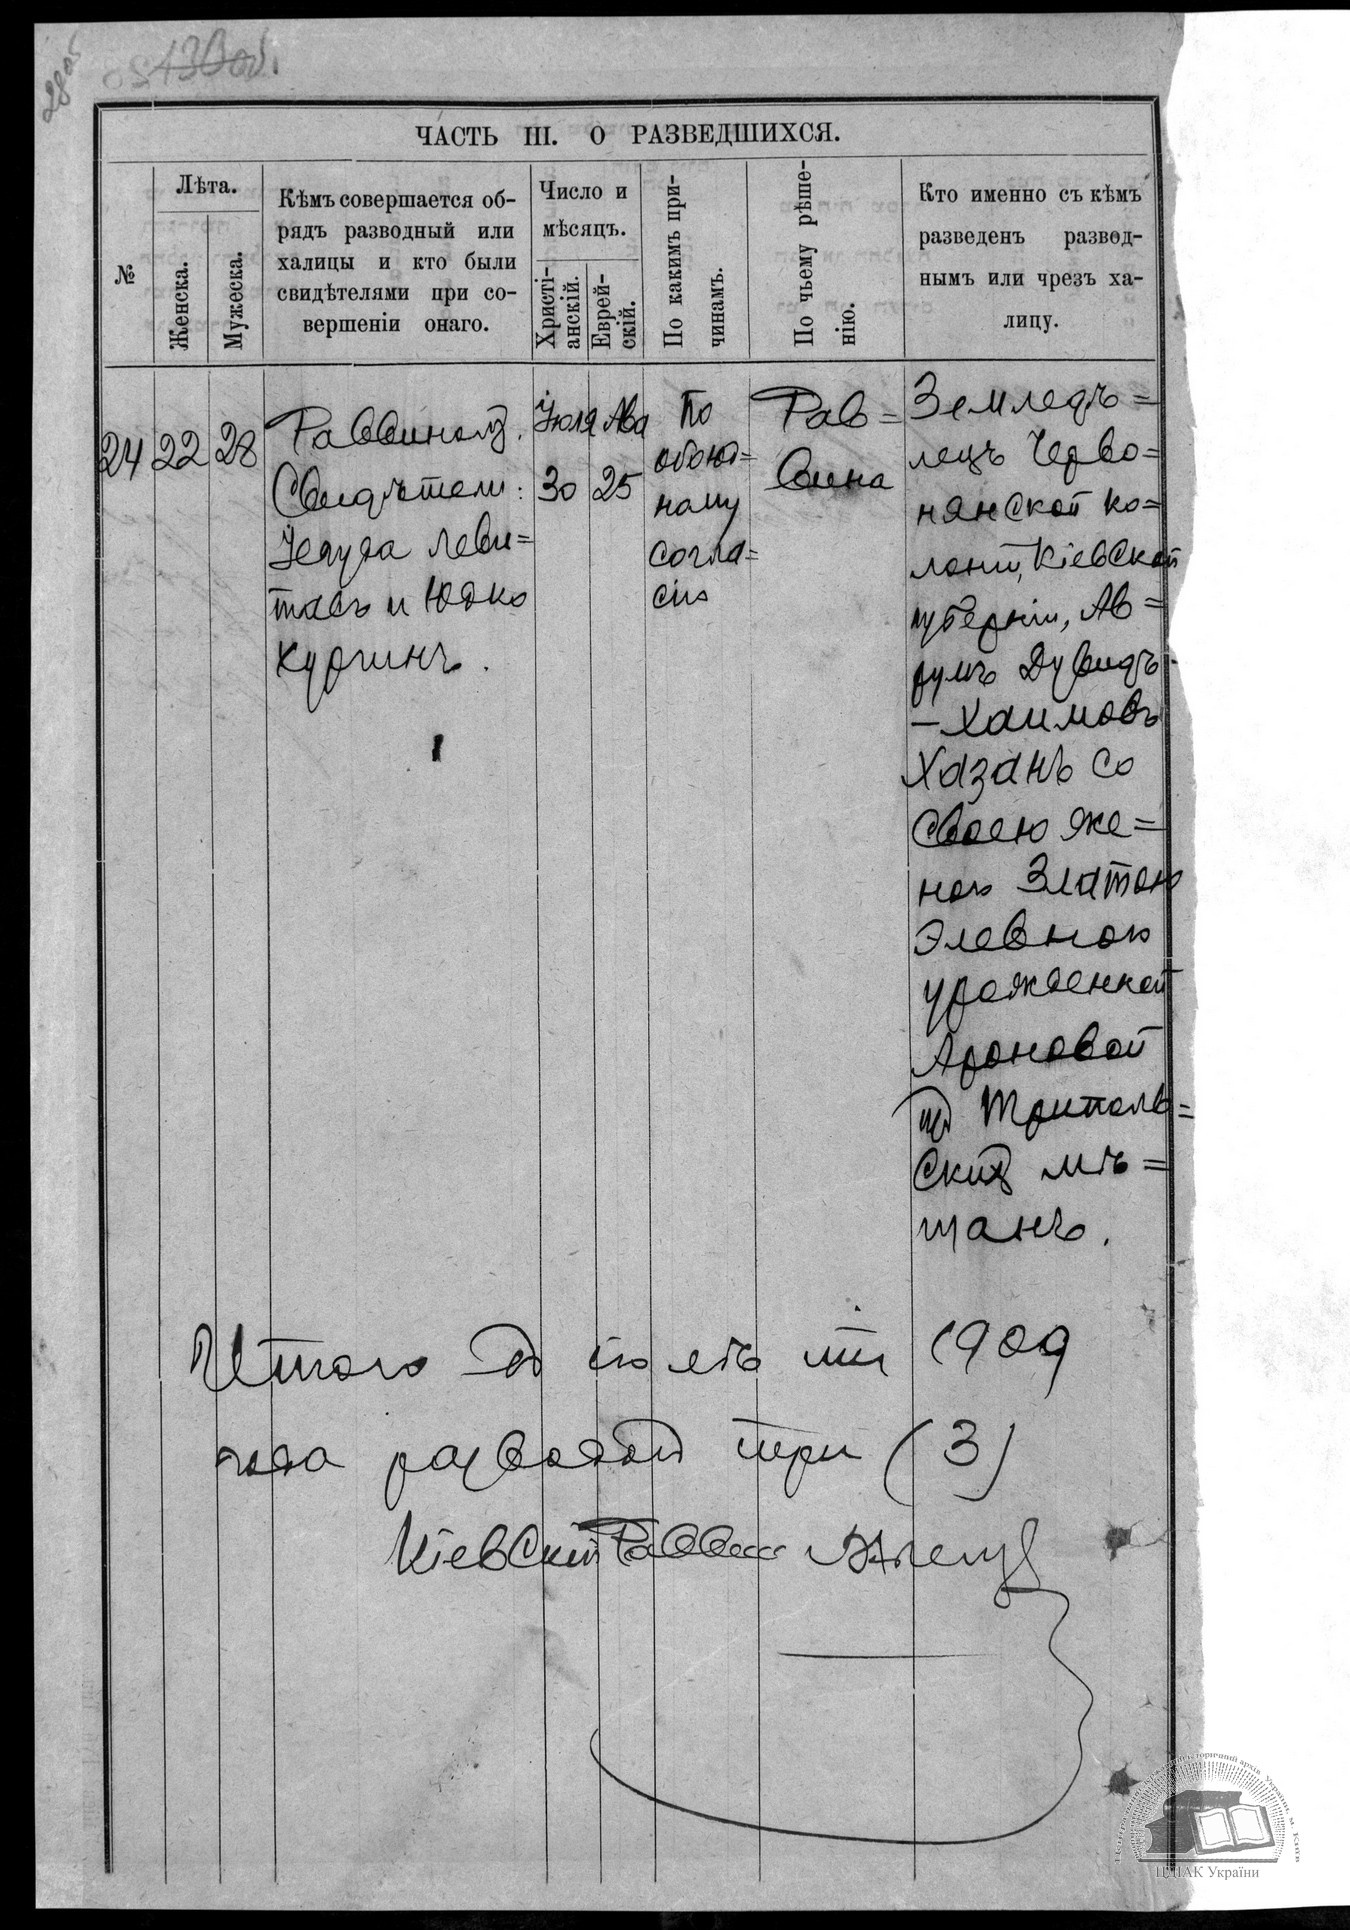 ЧАСТЬ III. О РАЗВЕДШИХСЯ.
№
Лѣта.
Женска.
Мужеска.
Кѣмъ совершается об-
рядъ разводный или
халицы и кто были
свидѣтелями при со-
вершеніи онаго.
Число и
мѣсяцъ.
Христі-
анскій.
Еврей-
скій.
По какимъ при-
чинамъ.
По чьему рѣше-
нію.
Кто именно съ кѣмъ
разведенъ развод-
нымъ или чрезъ ха-
лицу.
24
22
28
Раввиномъ.
Свидѣтели:
Іегуда Леви=
тасъ и Юдко
Кургинъ.
Іюля
30
Ава
25
По
обоюд=
ному
согла=
сію
Рав=
вина
Земледѣ=
лецъ Черво=
нянской ко=
лоніи, Кіевской
губерніи, Ав=
румъ Дувидъ-
-Хаимовъ
Хазанъ со
своею же=
ною Златою
Элевною
урожденной
Ароновой
изъ Триполь=
скихъ мѣ=
щанъ.
Итого въ іюлѣ мцѣ 1909
года разводовъ три (3)
Кіевскій Раввинъ
ЦДІАК України